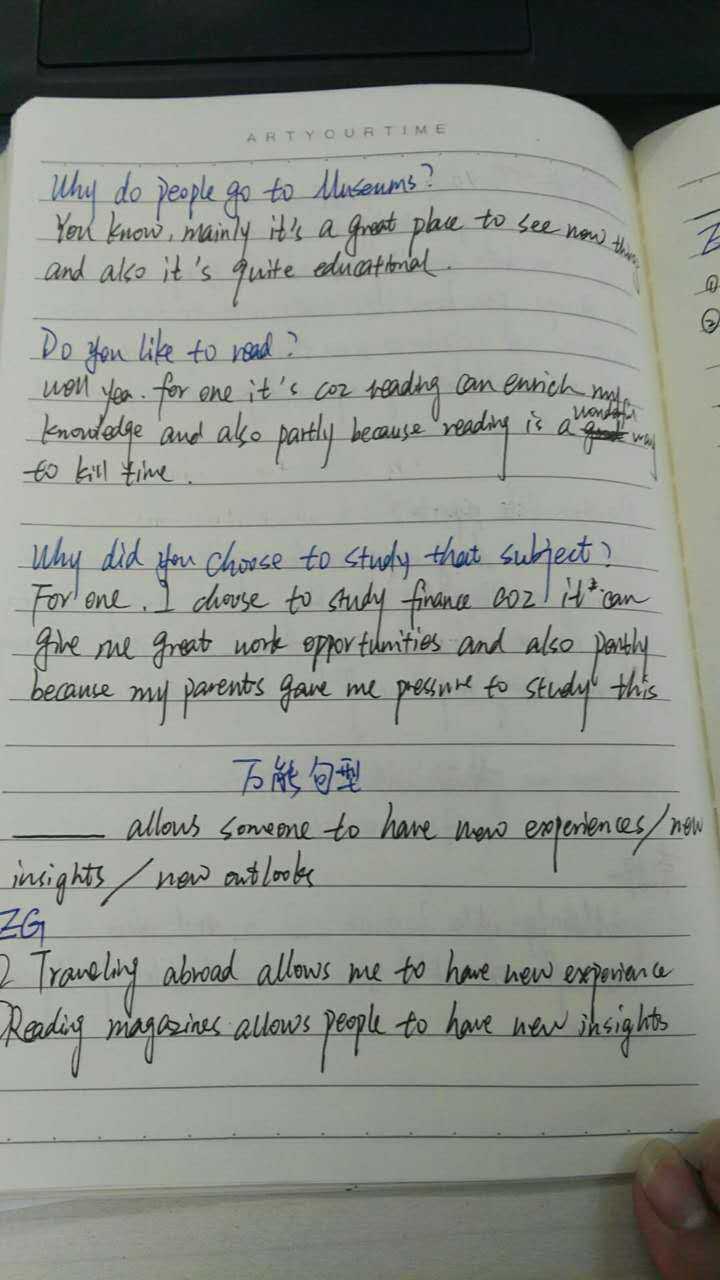 ARTYOURTIME
Why do people go to Museums?
You know, mainly it's a great place to see new things
and also it's quite educational.
Do you like to read?
well yea. for one it's coz reading can enrich my
knowledge and also partly because reading is a wonderful way
to kill time.
Why did you choose to study that subject?
For one, I choose to study finance coz it can
give me great work opportunities and also partly
because my parents gave me pressure to study this
万能句型
____ allows someone to have new experiences/new
insights/new outlooks
ZG
2 Traveling abroad allows me to have new experience
Reading magazines allows people to have new insights
①
②